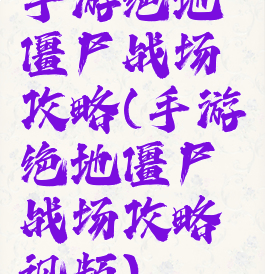 手游绝地
僵尸战场
攻略(手游
绝地僵尸
战场攻略
视频)